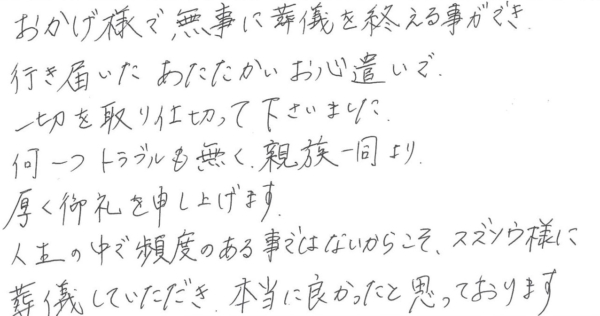 おかげ様で無事に葬儀を終える事ができ.
行き届いた あたたかい お心遣いで.
一切を取り仕切って下さいました.
何一つトラブルも無く.親族一同より.
厚く御礼を申し上げます.
人生の中で頻度のある事ではないからこそ、スズソウ様に
葬儀していただき.本当に良かったと思っております